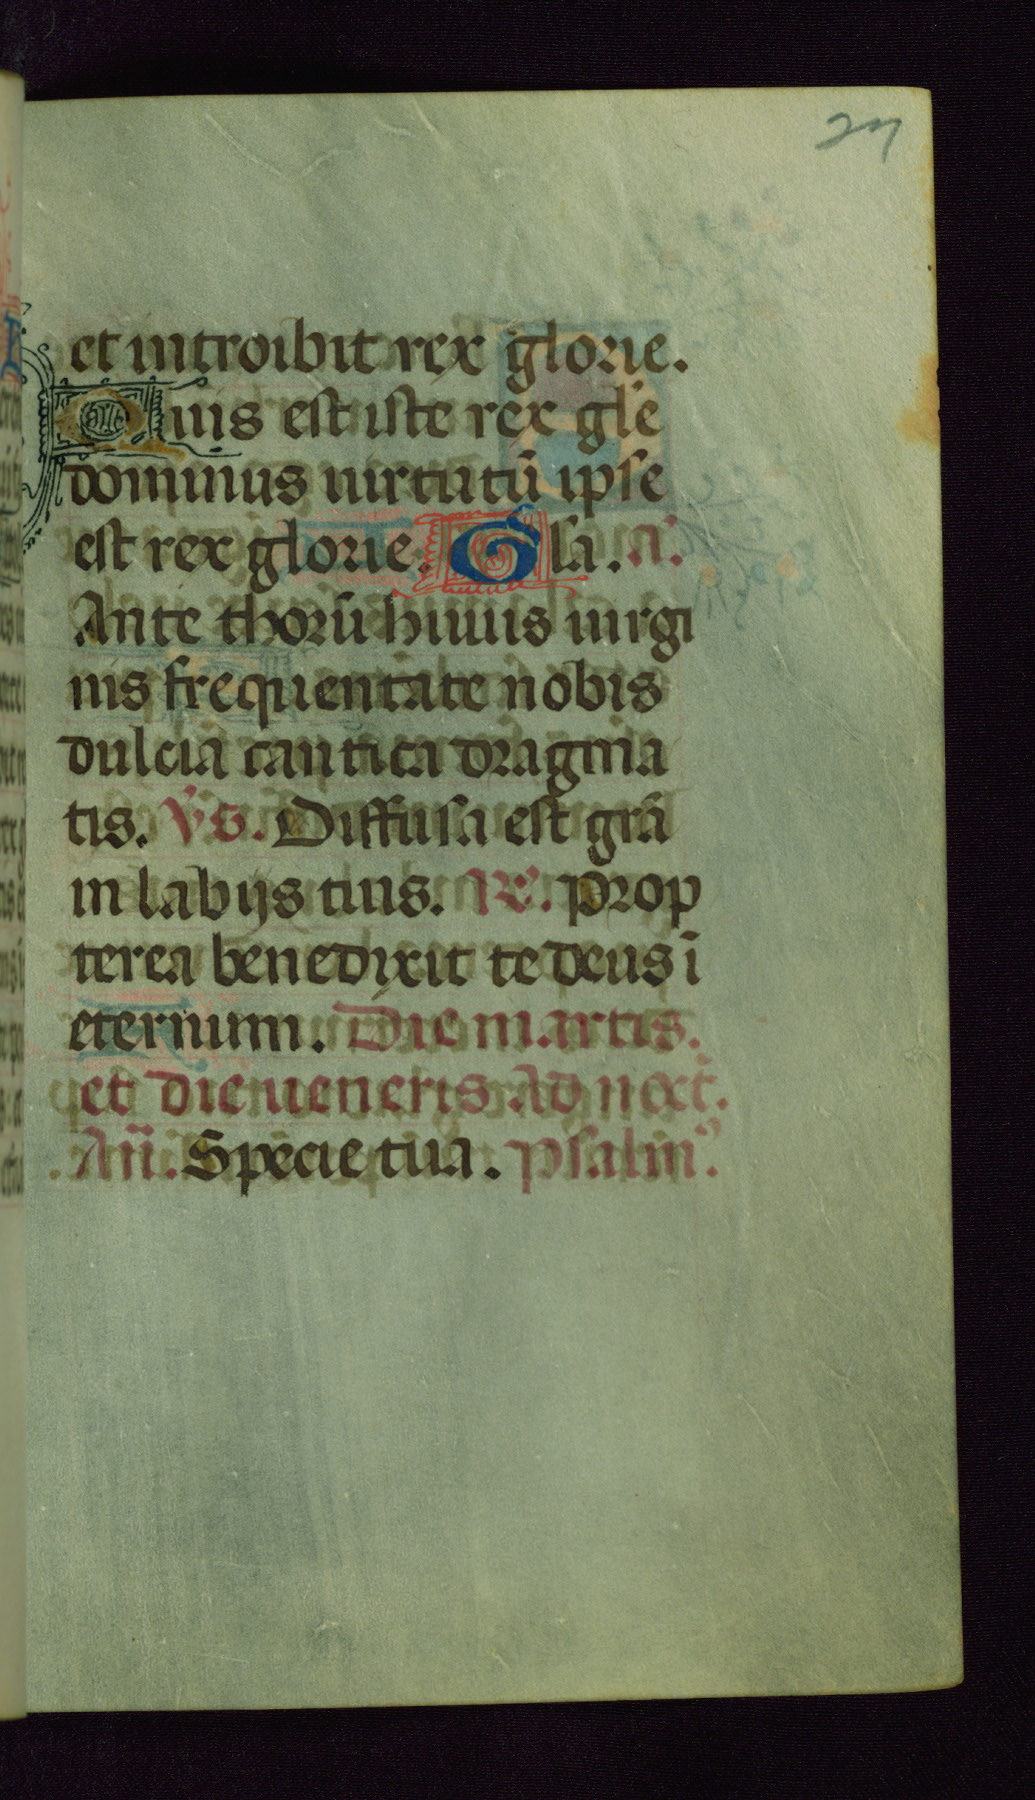 27
et introibit rex glorie.
Quis est iste rex gl̄e
dominus uirtutū ipse
est rex glorie. Gl̄a. A͛.
Ante thorū huius uirgi
nis frequentate nobis
dulcia cantica dragma
tis. Vs. Diffusa est grā
in labijs tuis. R͛. prop
terea benedixit te deus ī
eternum. Die martis.
et die ueneris Ad noct̄.
An̄. Specie tua. psalm͛.